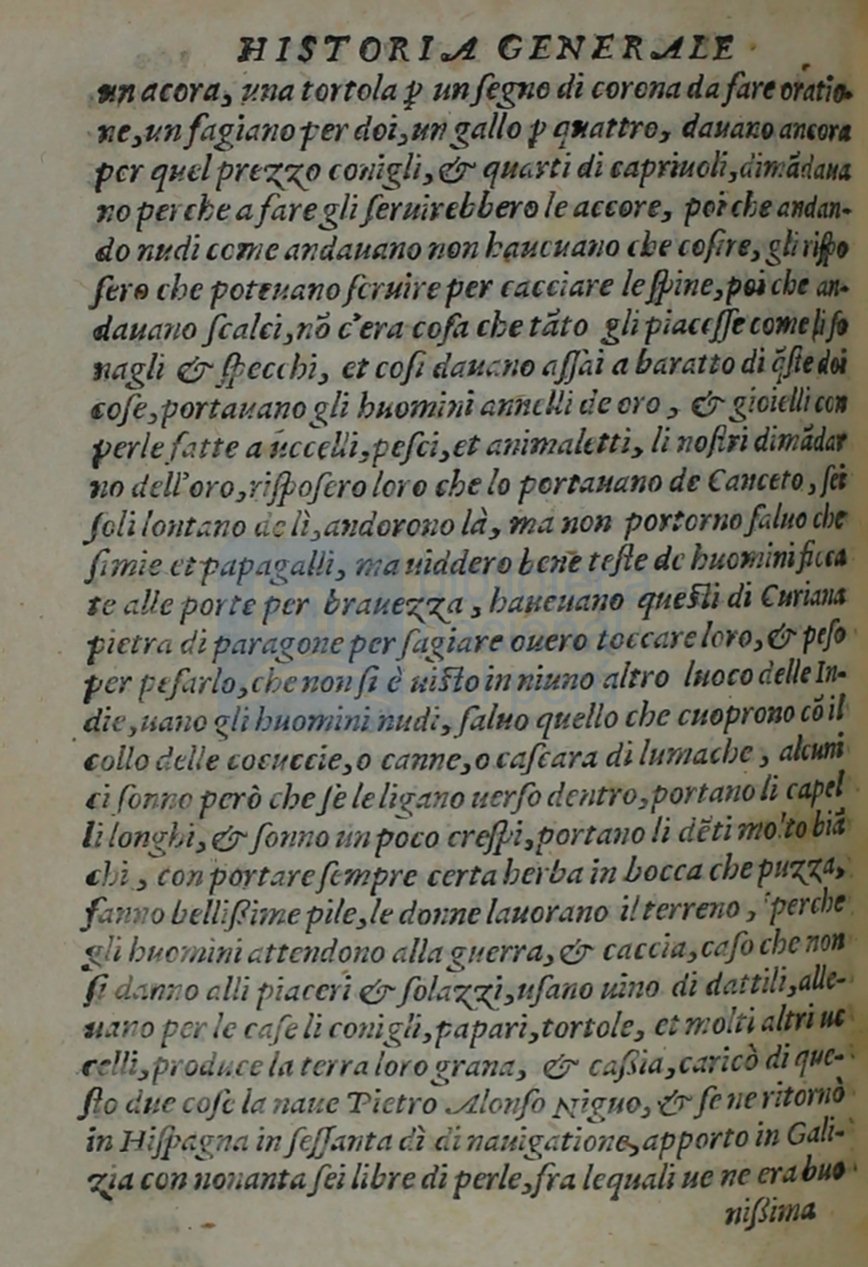 HISTORIA GENERALE
un acora, una tortola ꝑ un ſegno di corona da fare oratio-
ne, un fagiano per doi, un gallo ꝑ quattro, dauano ancora
per quel prezzo conigli, & quarti di capriuoli, dimãdaua
no perche a fare gli ſeruirebbero le accore, poi che andan-
do nudi come andauano non haueuano che coſire, gli riſpo
ſero che poteuano ſeruire per cacciare le ſpine, poi che an-
dauano ſcalci, nõ c'era coſa che tãto gli piaceſſe come li ſo
nagli & ſpecchi, et coſi dauano aſſai a baratto di q̃ſte doi
coſe, portauano gli huomini annelli de oro, & gioielli con
perle fatte a uccelli, peſci, et animaletti, li noſtri dimãdar
no dell'oro, riſpoſero loro che lo portauano de Cauceto, ſei
ſoli lontano de lì, andorono là, ma non portorno ſaluo che
ſimie et papagalli, ma uiddero bene teſte de huomini ficca
te alle porte per brauezza, haueuano queſti di Curiana
pietra di paragone per ſagiare ouero toccare loro, & peſo
per peſarlo, che non ſi è uiſto in niuno altro luoco delle In-
die, uano gli huomini nudi, ſaluo quello che cuoprono cõ il
collo delle cocuccie, o canne, o caſcara di lumache, alcuni
ci ſonno però che ſe le ligano uerſo dentro, portano li capel
li longhi, & ſonno un poco creſpi, portano li dẽti molto biã
chi, con portare ſempre certa herba in bocca che puzza,
fanno belliſſime pile, le donne lauorano il terreno, perche
gli huomini attendono alla guerra, & caccia, caſo che non
ſi danno alli piaceri & ſolazzi, uſano uino di dattili, alle-
uano per le caſe li conigli, papari, tortole, et molti altri uc
celli, produce la terra loro grana, & caſſia, caricò di que-
ſto due coſe la naue Pietro Alonſo Niguo, & ſe ne ritornò
in Hiſpagna in ſeſſanta dì di nauigatione, apporto in Gali-
zia con nonanta ſei libre di perle, fra lequali ue ne era buo
niſſima